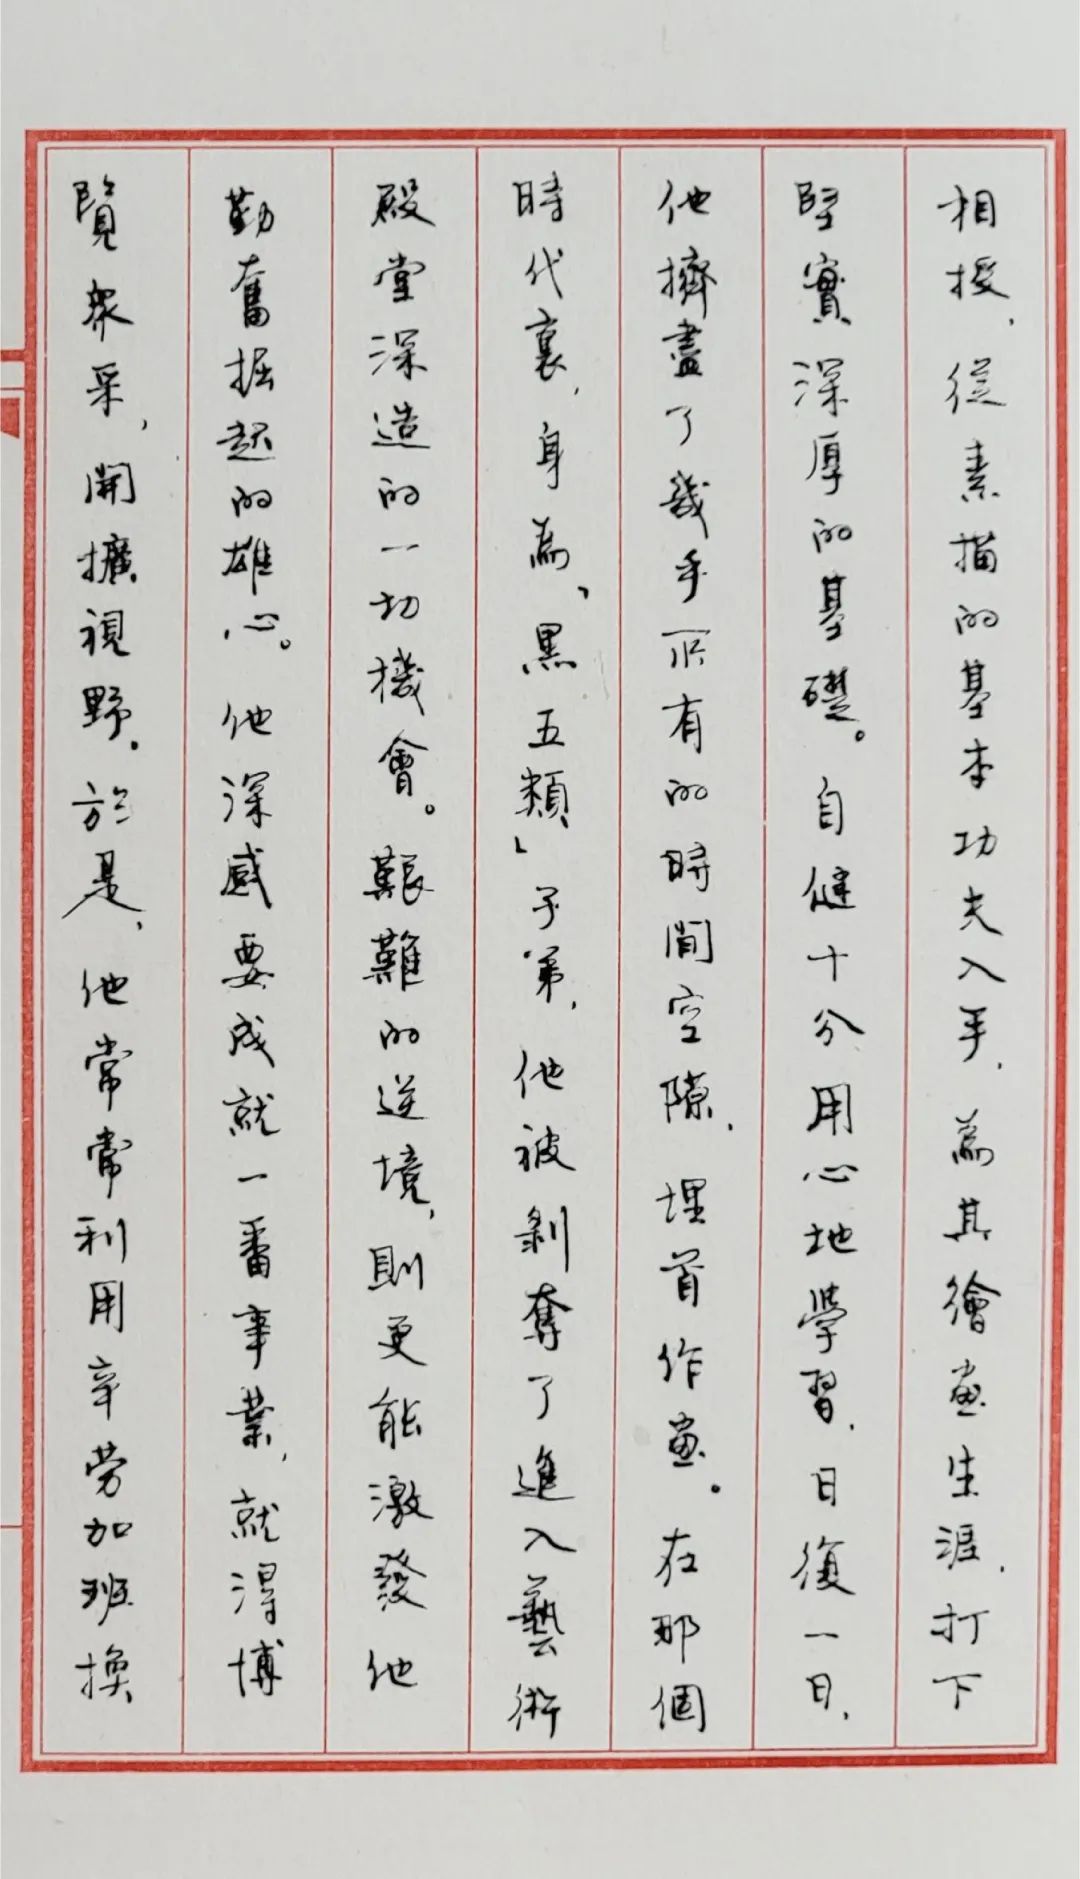 相授，從素描的基本功夫入手，為其繪畫生涯，打下
堅實深厚的基礎。自健十分用心地學習，日復一日，
他擠盡了幾乎所有的時間空隙，埋首作畫。在那個
時代裏，身為「黑五類」子弟，他被剝奪了進入藝術
殿堂深造的一切機會。艱難的逆境，則更能激發他
勤奮掘起的雄心。他深感要成就一番事業，就得博
覽衆采，開擴視野。於是，他常常利用辛勞加班換